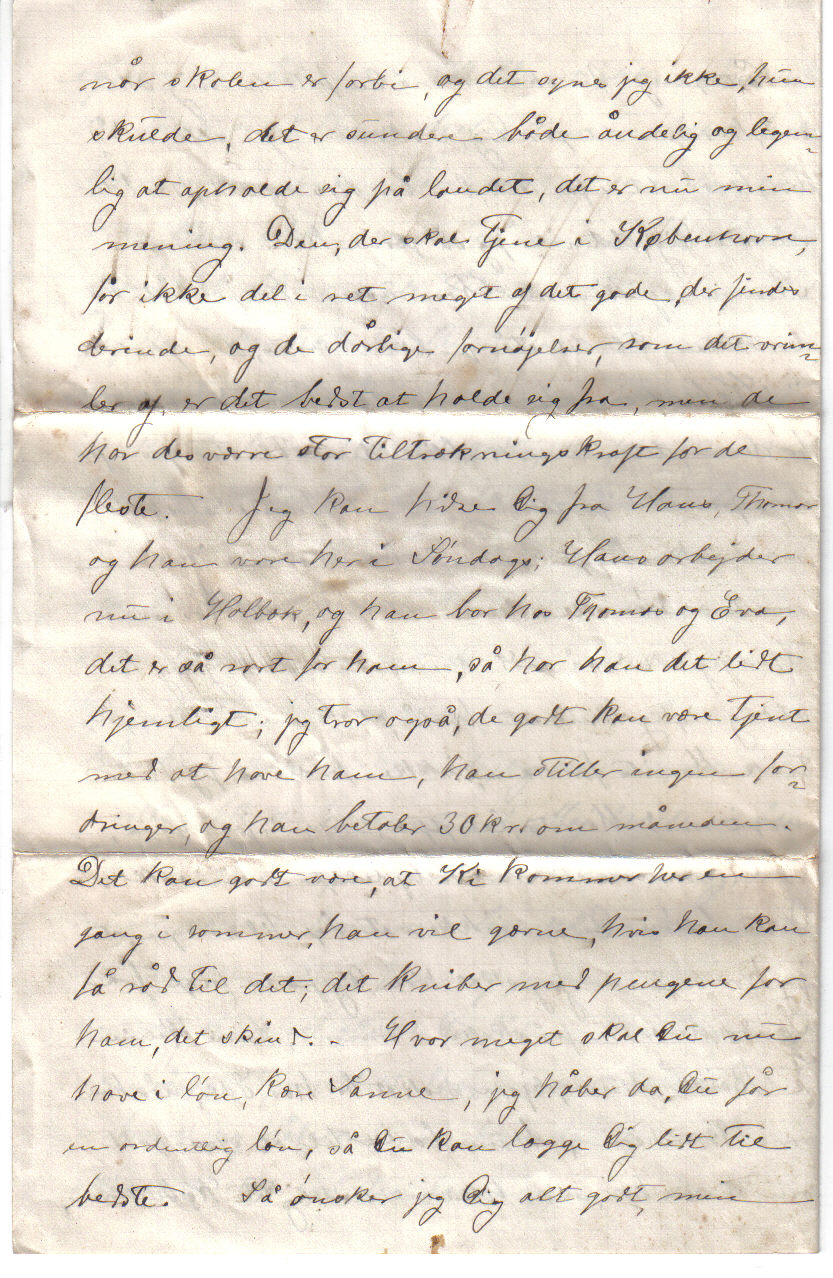 når skolen er forbi, og det synes jeg ikke, hun
skulde, det er sundere både åndelig og legem-
lig at opholde sig på landet, det er nu min
mening. Den, der skal tjene i København,
får ikke del i ret meget af det gode, der findes
derinde, og de dårlige fornøjelser, som det vrim-
ler af, er det bedst at holde sig fra, men de
har desværre stor tiltrækningskraft for de
fleste. Jeg kan hilse Dig fra Hans, Thomas
og han vare her i Søndags; Hans arbejder
nu i Holbæk, og han bor hos Thomas og Eva,
det er så rart for ham, så har han det lidt
hjemligt; jeg tror også, de godt kan være tjent
med at have ham, han stiller ingen for-
dringer, og han betaler 30 kr. om måneden.
Det kan godt være, at Ki kommer her en
gang i sommer, han vil gærne, hvis han kan
få råd til det; det kniber med pengene for
ham, det skind. - Hvor meget skal Du nu
have i løn, kære Sanne, jeg håber da, Du får
en ordentlig løn, så Du kan lægge Dig lidt til
bedste. Så ønsker jeg Dig alt godt, min